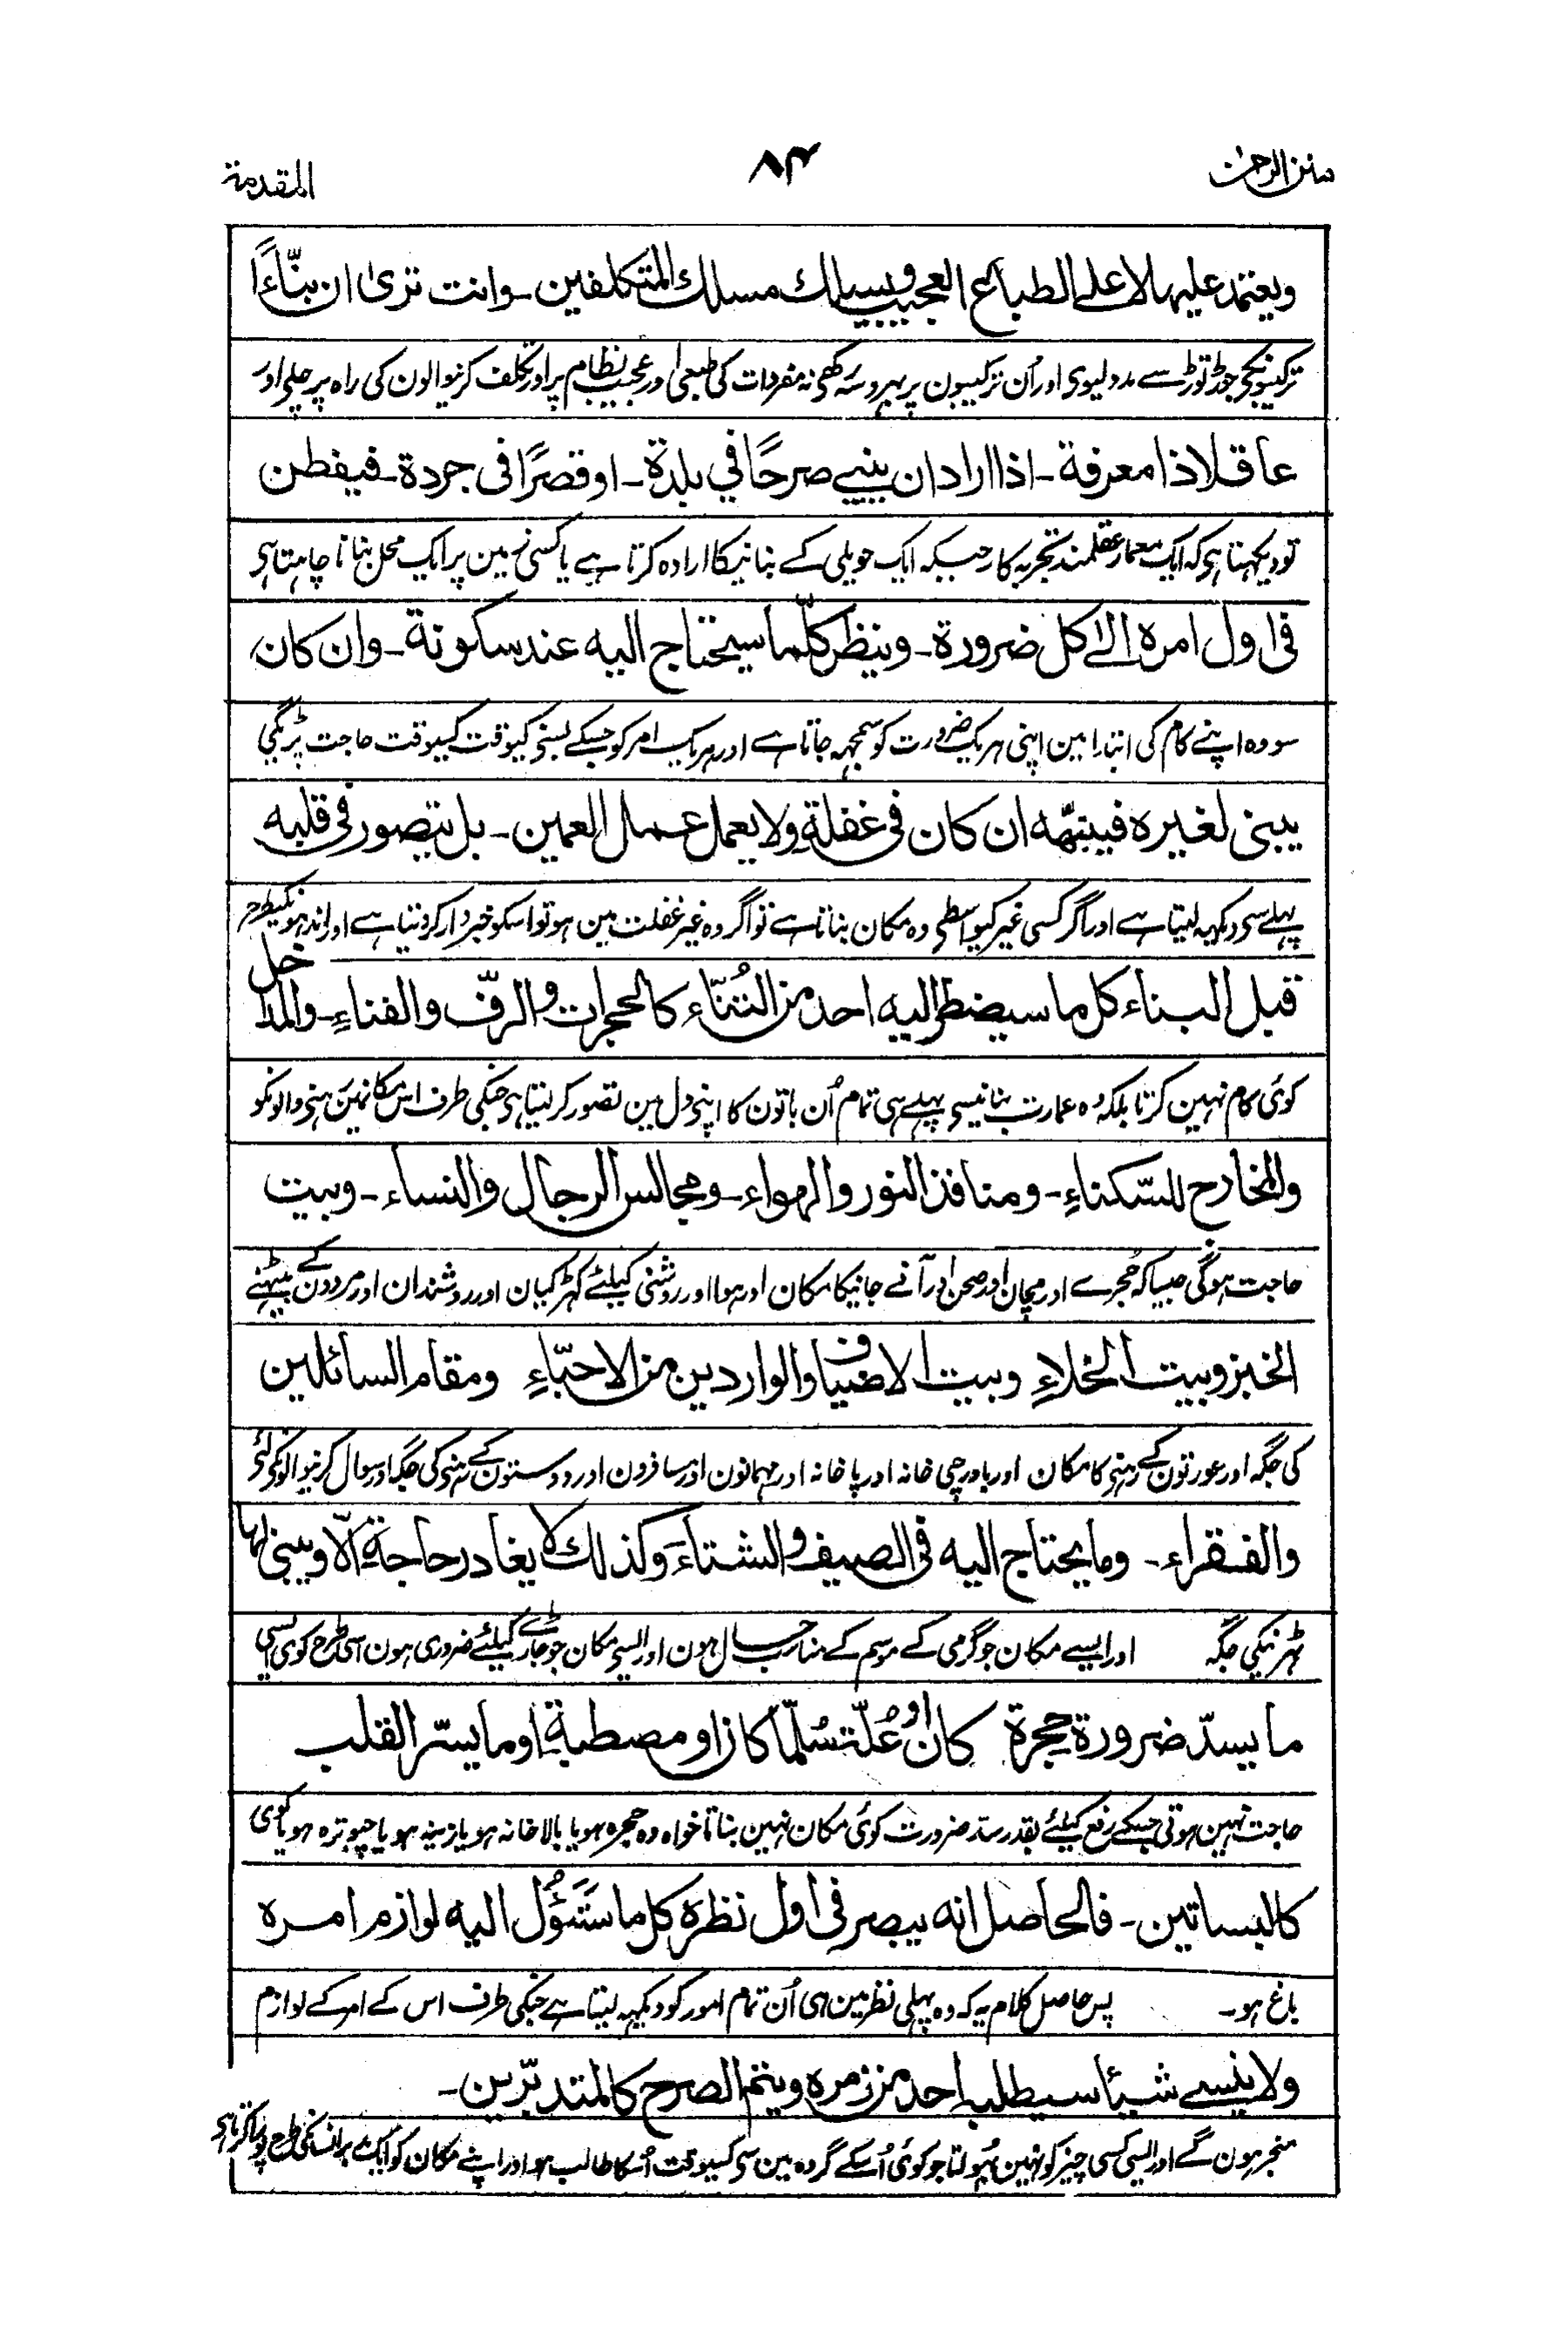 منن الرحمٰن
۸۴
المقدمة
ويعتمد عليها لا على الطباع العجيب ويسلك مسلك المتكلفين۔ وانت ترىٰ ان بنّاءً ا
ترکیبونکی جوڑ توڑ سے مدد لیوی اور اُن ترکیبون پر بہروسہ رکھی نہ مفردات کی طبعی اور عجیب نظام پر اور تکلف کرنیوالون کی راہ پر چلی اور
عاقلا ذا معرفة۔ اذا اراد ان يبني صرحًا في بلدة۔ او قصرًا فى جردة۔ فيفطن
تو دیکہتا ہی کہ ایک معمار عقلمند تجربہ کار جبکہ ایک حویلی کے بنانیکا ارادہ کرتا ہے یا کسی زمین پر ایک محل بنانا چاہتا ہی
فى اول امره الىٰ كل ضرورة۔ وينظر كلّما سيحتاج اليه عند سكونة۔ وان كان
سو وہ اپنے کام کی ابتدا مین اپنی ہریک ضرورت کو سمجہہ جاتا ہے اور ہریک امر کو جسکے بسنی کیوقت کسیوقت حاجت پڑیگی
يبنى لغيره فينبّهه ان كان فى غفلة ولا يعمل عمل العمين۔ بل يتصور فى قلبه
پہلے سی دیکہہ لیتا ہے اور اگر کسی غیر کیواسطی وہ مکان بناتا ہے تو اگر وہ غیر غفلت مین ہو تو اسکو خبردار کر دیتا ہے اور اندہونکیطرح
قبل البناء كل ما سيضطر اليه احد من الثُنّاء كالحجرات والرفّ والفناءِ۔ والمداخل
کوئی کام نہین کرتا بلکہ وہ عمارت بنانیسی پہلے ہی تمام اُن باتون کا اپنی دل مین تصور کر لیتا ہی جنکی طرف اس مکانمین رہنی والونکو
والمخارج للسّكناءِ۔ ومنافذ النور والهواء۔ ومجالس الرجال والنساء۔ وبيت
حاجت ہوگی جیسا کہ حُجرے اور مچان اور صحن اور آنے جانیکا مکان اور ہوا اور روشنی کیلئے کہڑکیان اور روشندان اور مردون کے بیٹہنے
الخبز وبيت الخلاءِ وبيت الاضياف والواردين من الاحبّاءِ ومقام السائلين
کی جگہ اور عورتون کے رہنی کا مکان اور باورچی خانہ اور پاخانہ اور مہمانون اور مسافرون اور دوستون کے رہنی کی جگہ اور سوال کرنیوالونکی لئی
والفقراء۔ وما يحتاج اليه فى الصيف والشتاءَ وكذلك لا يغادر حاجة الّا ويبنى لها
ٹہرنیکی جگہ اور ایسے مکان جو گرمی کے موسم کے مناسب حال ہون اور ایسی مکان جو جاڑے کیلئے ضروری ہون اسی طرح کوی ایسی
ما يسدّ ضرورة حجرة كان او عُلّة سُلّمًا كان او مصطبة او ما يسّر القلب
حاجت نہین ہوتی جسکے رفع کیلئے بقدر سد ضرورت کوئی مکان نہین بناتا خواہ وہ حجرہ ہو یا بالا خانہ ہو یا زینہ ہو یا چبوترہ ہو یا کوی
كالبساتين۔ فالحاصل انه يبصر فى اول نظره كل ما ستَئول اليه لوازم امره
باغ ہو۔ پس حاصل کلام یہ کہ وہ پہلی نظر مین ہی اُن تمام امور کو دیکہہ لیتا ہے جنکی طرف اس کے امر کے لوازم
ولا ينسى شيئا سيطلبه احد من زمره ويتم الصرح كالمتدبّرين۔
منجر ہون گے اور ایسی کسی چیز کو نہین بُہولتا جو کوئی اُسکے گروہ مین سی کسیوقت اُسکا طالب ہو اور اپنے مکان کو ایک مدبر انسانکی طرح پورا کرتا ہی